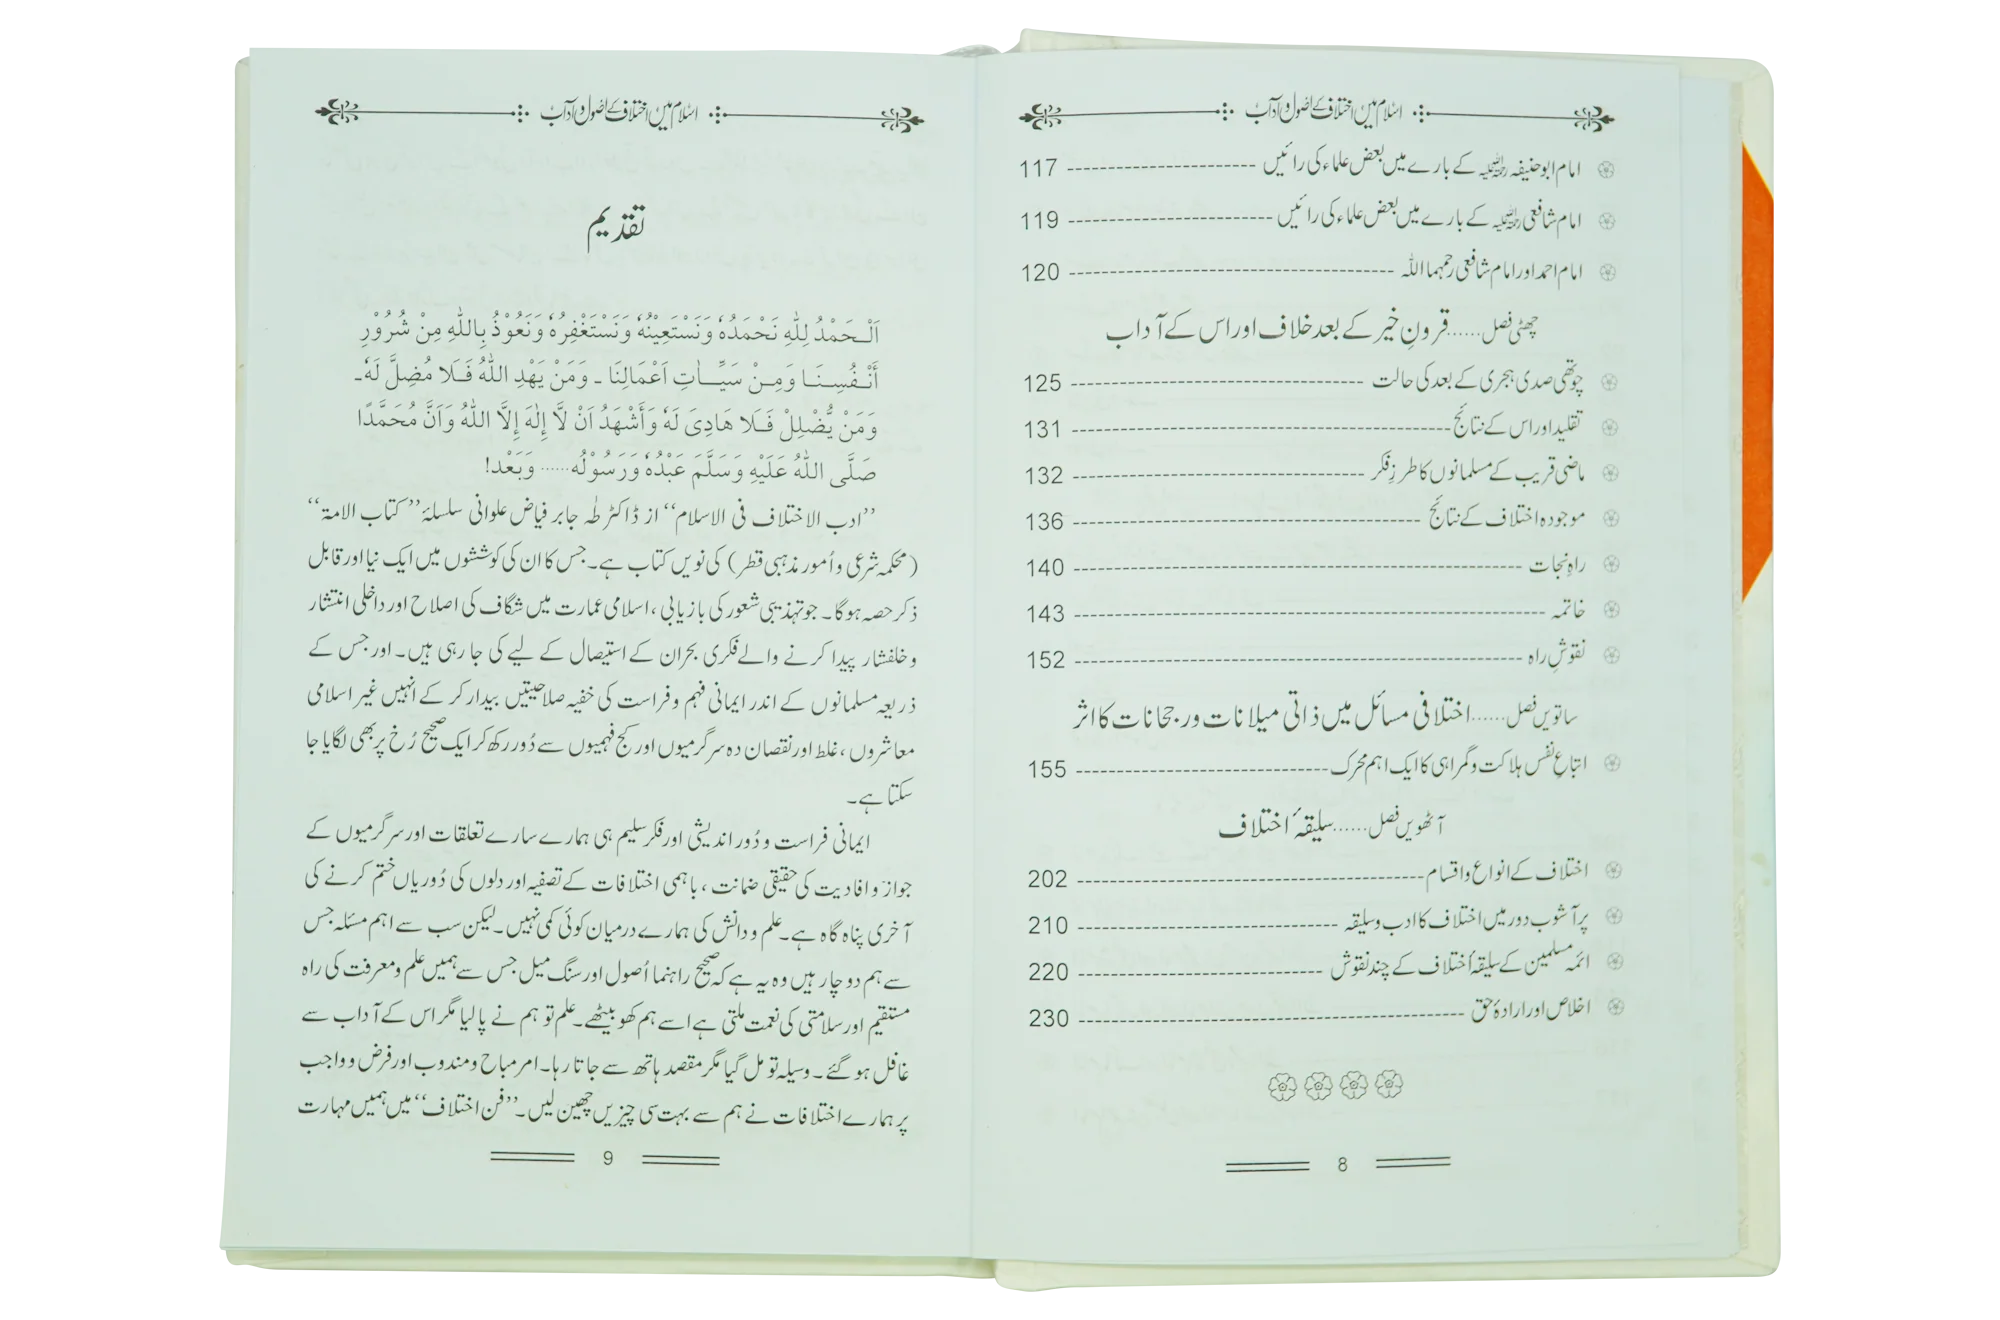 اسلام میں اختلاف کے اصول و آداب
امام ابوحنیفہ رحمۃ اللہ علیہ کے بارے میں بعض علماء کی رائیں ---------------- 117
امام شافعی رحمۃ اللہ علیہ کے بارے میں بعض علماء کی رائیں ---------------- 119
امام احمد اور امام شافعی رحمہما اللہ ---------------- 120
چھٹی فصل......قرونِ خیر کے بعد خلاف اور اس کے آداب
چوتھی صدی ہجری کے بعد کی حالت ---------------- 125
تقلید اور اس کے نتائج ---------------- 131
ماضی قریب کے مسلمانوں کا طرزِ فکر ---------------- 132
موجودہ اختلاف کے نتائج ---------------- 136
راہِ نجات ---------------- 140
خاتمہ ---------------- 143
نقوشِ راہ ---------------- 152
ساتویں فصل......اختلافی مسائل میں ذاتی میلانات ورجحانات کا اثر
اتباعِ نفس ہلاکت وگمراہی کا ایک اہم محرک ---------------- 155
آٹھویں فصل......سلیقۂ اختلاف
اختلاف کے انواع واقسام ---------------- 202
پرآشوب دور میں اختلاف کا ادب وسلیقہ ---------------- 210
ائمہ مسلمین کے سلیقۂ اختلاف کے چند نقوش ---------------- 220
اخلاص اور ارادۂ حق ---------------- 230
8
اسلام میں اختلاف کے اصول و آداب
تقدیم
اَلْحَمْدُ لِلّٰهِ نَحْمَدُهٗ وَنَسْتَعِيْنُهٗ وَنَسْتَغْفِرُهٗ وَنَعُوْذُ بِاللّٰهِ مِنْ شُرُوْرِ
أَنْفُسِنَا وَمِنْ سَيِّاٰتِ اَعْمَالِنَا ۔ وَمَنْ يَهْدِ اللّٰهُ فَلَا مُضِلَّ لَهٗ۔
وَمَنْ يُّضْلِلْ فَلَا هَادِىَ لَهٗ وَأَشْهَدُ اَنْ لَّا إِلٰهَ إِلَّا اللّٰهُ وَاَنَّ مُحَمَّدًا
صَلَّى اللّٰهُ عَلَيْهِ وَسَلَّمَ عَبْدُهٗ وَرَسُوْلُه...... وَبَعْد!
”ادب الاختلاف فی الاسلام“ از ڈاکٹر طٰہٰ جابر فیاض علوانی سلسلۂ ”کتاب الامۃ“
(محکمہ شرعی واُمور مذہبی قطر) کی نویں کتاب ہے۔ جس کا ان کی کوششوں میں ایک نیا اور قابل
ذکر حصہ ہوگا۔ جو تہذیبی شعور کی بازیابی، اسلامی عمارت میں شگاف کی اصلاح اور داخلی انتشار
وخلفشار پیدا کرنے والے فکری بحران کے استیصال کے لیے کی جا رہی ہیں۔ اور جس کے
ذریعہ مسلمانوں کے اندر ایمانی فہم وفراست کی خفیہ صلاحیتیں بیدار کر کے انہیں غیر اسلامی
معاشروں، غلط اور نقصان دہ سرگرمیوں اور کج فہمیوں سے دُور رکھ کر ایک صحیح رُخ پر بھی لگایا جا
سکتا ہے۔
ایمانی فراست و دُور اندیشی اور فکر سلیم ہی ہمارے سارے تعلقات اور سرگرمیوں کے
جواز وافادیت کی حقیقی ضمانت، باہمی اختلافات کے تصفیہ اور دلوں کی دُوریاں ختم کرنے کی
آخری پناہ گاہ ہے۔ علم ودانش کی ہمارے درمیان کوئی کمی نہیں۔ لیکن سب سے اہم مسئلہ جس
سے ہم دوچار ہیں وہ یہ ہے کہ صحیح راہنما اُصول اور سنگ میل جس سے ہمیں علم ومعرفت کی راہ
مستقیم اور سلامتی کی نعمت ملتی ہے اسے ہم کھو بیٹھے۔ علم تو ہم نے پا لیا مگر اس کے آداب سے
غافل ہو گئے۔ وسیلہ تو مل گیا مگر مقصد ہاتھ سے جاتا رہا۔ امر مباح ومندوب اور فرض وواجب
پر ہمارے اختلافات نے ہم سے بہت سی چیزیں چھین لیں۔ ”فن اختلاف“ میں ہمیں مہارت
9